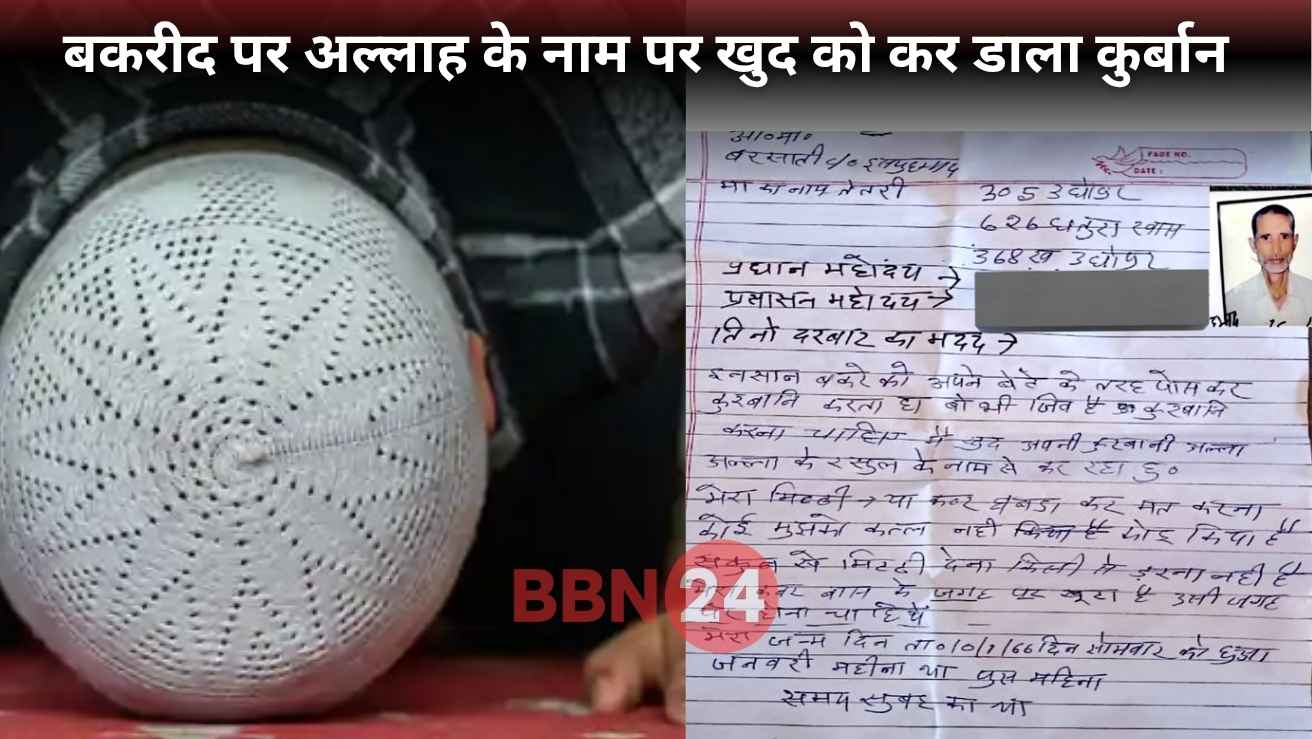 बकरीद पर अल्लाह के नाम पर खुद को कर डाला कुर्बान
PAGE NO.
DATE:
मा का नाम तेतरी
626
368 ख
प्रधान महोदय →
प्रसासन महोदय →
तिनो दरबार का मदद →
इनसान बकरे को अपने बेटे के तरह पोस कर
कुरबानि करता है वो भी जिव है कुरबानि
करना चाहिए मै खुद अपनी कुरबानी अल्ला
अल्ला के रसुल के नाम से कर रहा हु०
मेरा मिट्टी → या कबर घबड़ा कर मत करना
कोई मुझको कत्ल नही किया है
सकुन से मिट्टी देना किसी से डरना नही है
जगह पर खूटा है उसी जगह
पर होना चाहिये
मेरा जन्म दिन ता० दिन सोमवार को हुआ
जनवरी महीना था पुस महिना
समय सुबह का था
BBN 24